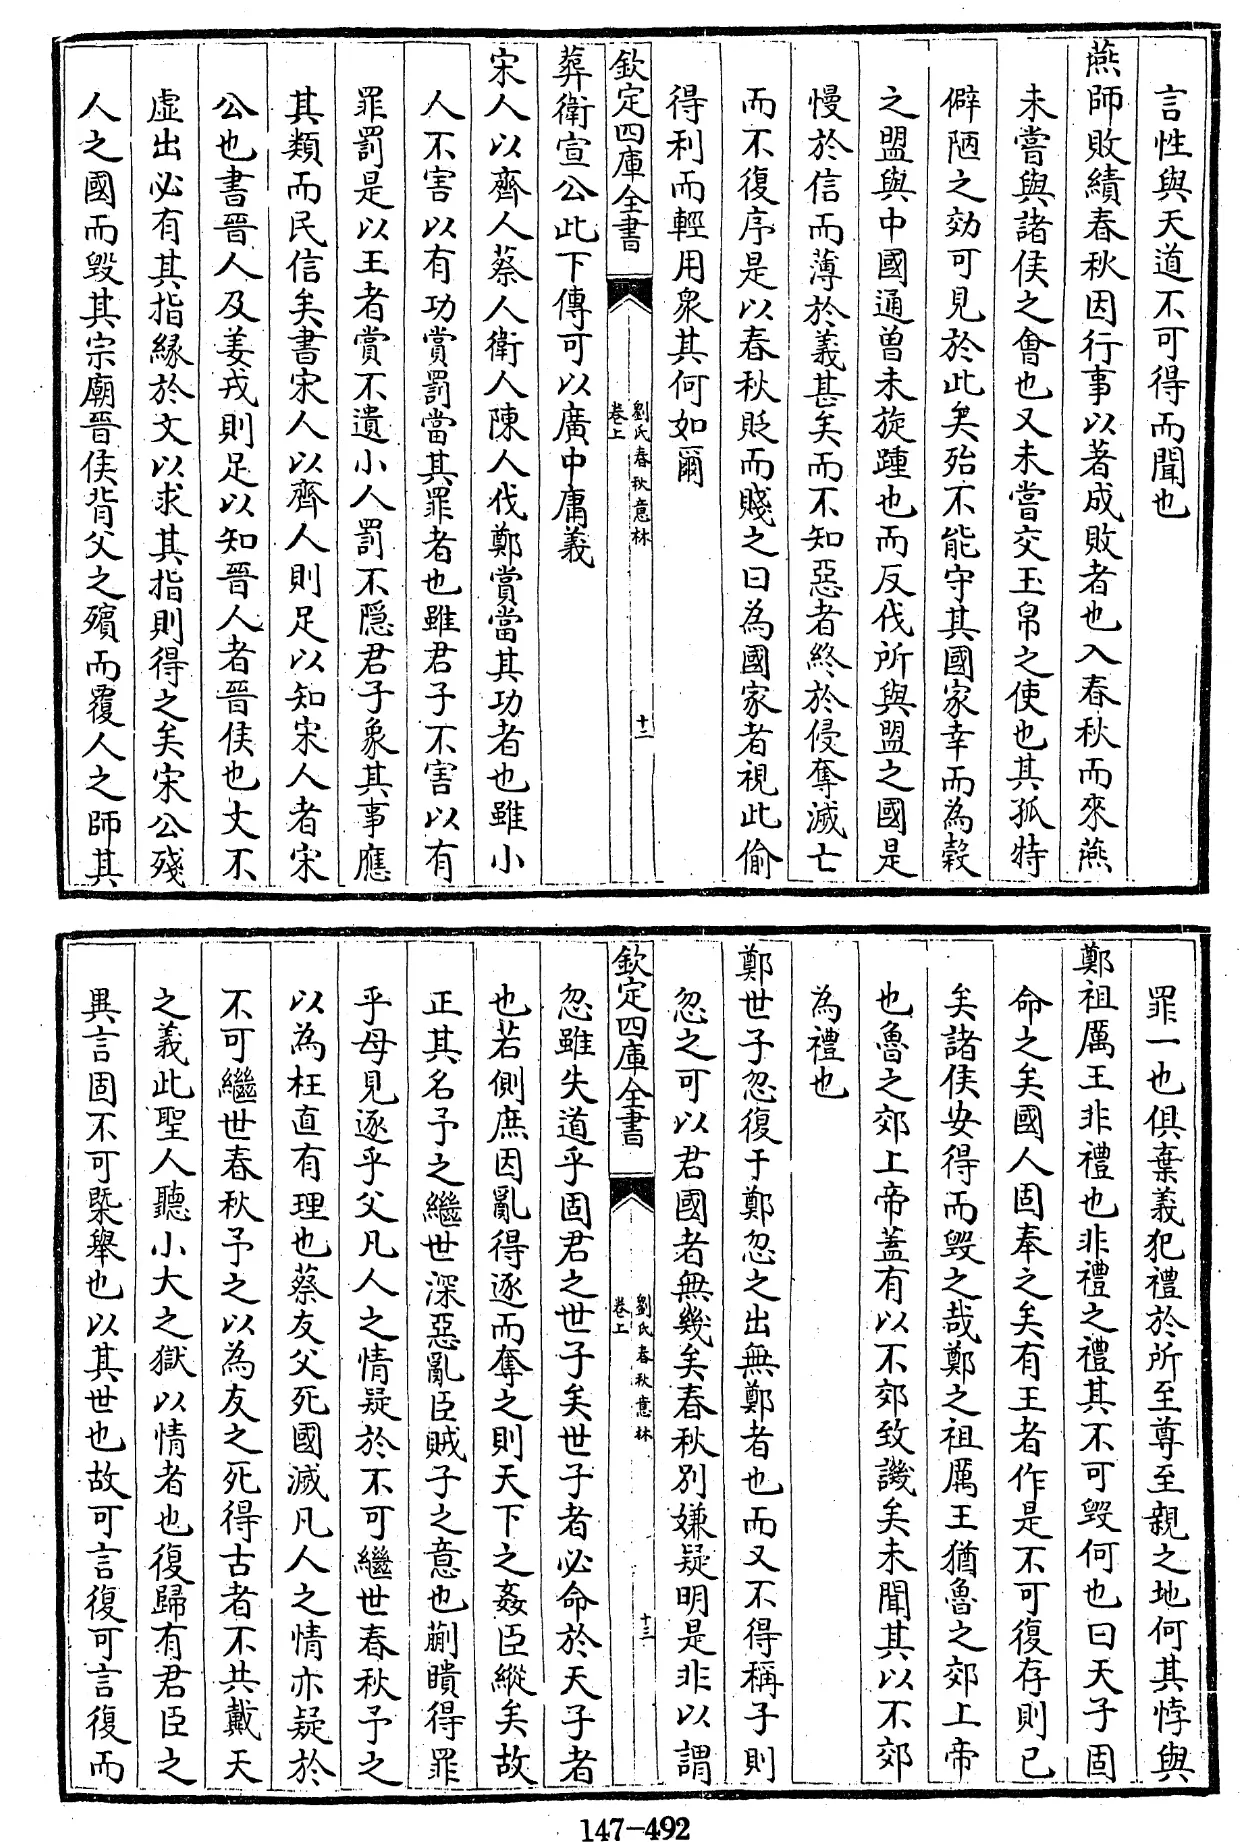 言性與天道不可得而聞也
燕師敗績春秋因行事以著成敗者也入春秋而來燕
未嘗與諸侯之會也又未嘗交玉帛之使也其孤特
僻陋之効可見於此矣殆不能守其國家幸而為穀
之盟與中國通曾未旋踵也而反伐所與盟之國是
慢於信而薄於義甚矣而不知惡者終於侵奪滅亡
而不復序是以春秋貶而賤之曰為國家者視此偷
得利而輕用衆其何如爾
欽定四庫全書
劉氏春秋意林
卷上
十二
葬衛宣公此下傳可以廣中庸義
宋人以齊人蔡人衛人陳人伐鄭賞當其功者也雖小
人不害以有功賞罰當其罪者也雖君子不害以有
罪罰是以王者賞不遺小人罰不隱君子象其事應
其類而民信矣書宋人以齊人則足以知宋人者宋
公也書晉人及姜戎則足以知晉人者晉侯也文不
虛出必有其指緣於文以求其指則得之矣宋公殘
人之國而毀其宗廟晉侯背父之殯而覆人之師其
罪一也俱棄義犯禮於所至尊至親之地何其悖與
鄭祖厲王非禮也非禮之禮其不可毀何也曰天子固
命之矣國人固奉之矣有王者作是不可復存則已
矣諸侯安得而毀之哉鄭之祖厲王猶魯之郊上帝
也魯之郊上帝蓋有以不郊致譏矣未聞其以不郊
為禮也
鄭世子忽復于鄭忽之出無鄭者也而又不得稱子則
忽之可以君國者無幾矣春秋別嫌疑明是非以謂
欽定四庫全書
劉氏春秋意林
卷上
十三
忽雖失道乎固君之世子矣世子者必命於天子者
也若側庶因亂得逐而奪之則天下之姦臣縱矣故
正其名予之繼世深惡亂臣賊子之意也蒯聵得罪
乎母見逐乎父凡人之情疑於不可繼世春秋予之
以為枉直有理也蔡友父死國滅凡人之情亦疑於
不可繼世春秋予之以為友之死得古者不共戴天
之義此聖人聽小大之獄以情者也復歸有君臣之
異言固不可槩舉也以其世也故可言復可言復而
147-492